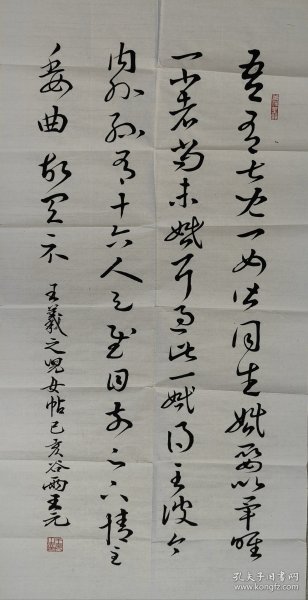 吾有七兒一女皆同生婚娶以畢唯
一小者尚未婚耳過此一婚得至彼今
内外孫有十六人足慰目前足下情至
委曲故具示
王羲之兒女帖己亥谷雨王元
孔夫子旧书网